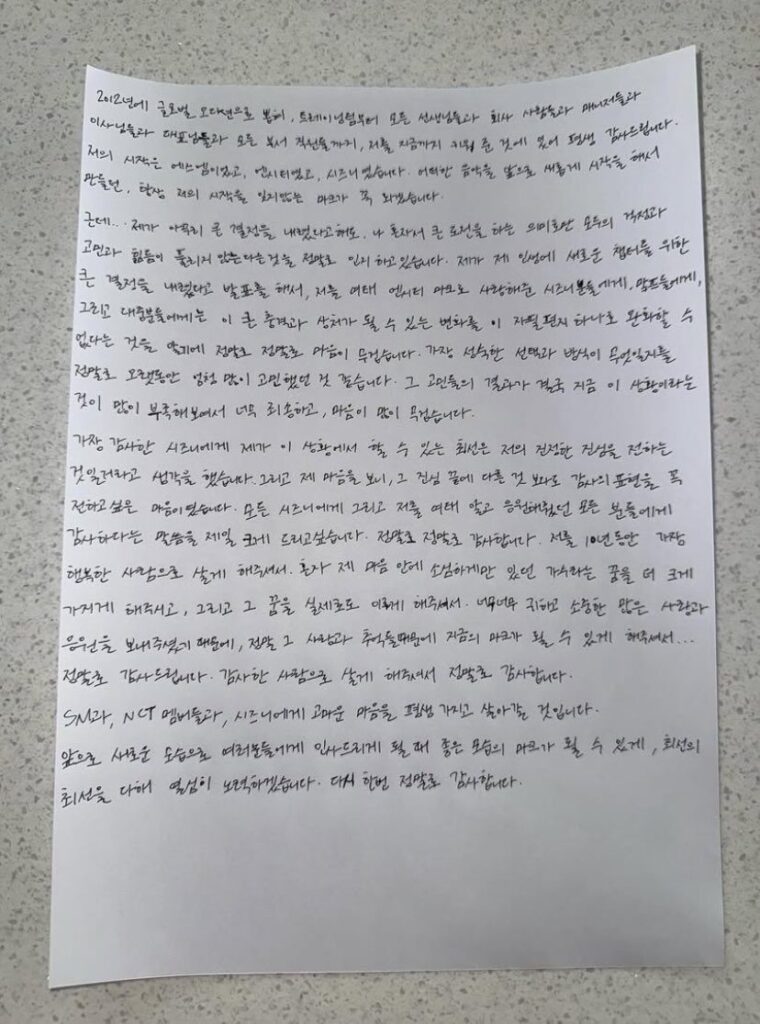 2012년에 글로벌 오디션으로 붙어, 트레이닝팀부터 모든 선생님들과 회사 사람들과 매니저들과
이사님들과 대표님들과 모든 부서 직원들까지, 저를 지금까지 키워 준 것에 있어 평생 감사드립니다.
저의 시작은 에스엠이었고, 엔시티였고, 시즈니였습니다. 어떠한 음악을 앞으로 새롭게 시작을 해서
만들던, 항상 저의 시작을 잊지않는 마크가 꼭 되겠습니다.
근데.. 제가 아무리 큰 결정을 내렸다고해도, 나 혼자서 큰 도전을 하는 의미로만 모두의 걱정과
고민과 힘듦이 풀리지 않는다는것을 정말로 인지하고있습니다. 제가 제 인생에 새로운 챕터를 위한
큰 결정을 내렸다고 발표를 해서, 저를 여태 엔시티 마크로 사랑해준 시즈니분들에게, 맠프들에게,
그리고 대중분들에게는 이 큰 충격과 상처가 될 수 있는 변화를 이 자필편지 하나로 완화할 수
없다는 것을 알기에 정말로 정말로 마음이 무겁습니다. 가장 성숙한 선택과 방식이 무엇일지를
정말로 오랫동안 엄청 많이 고민했던 것 같습니다. 그 고민들의 결과가 결국 지금 이 상황이라는
것이 많이 부족해보여서 너무 죄송하고, 마음이 많이 무겁습니다.
가장 감사한 시즈니에게 제가 이 상황에서 할 수 있는 최선은 저의 진정한 진심을 전하는
것일거라고 생각을 했습니다. 그리고 제 마음을 보니, 그 진심 끝에 다른 것 보다도 감사의 표현을 꼭
전하고싶은 마음이였습니다. 모든 시즈니에게 그리고 저를 여태 알고 응원해줬던 모든 분들에게
감사하다는 말씀을 제일 크게 드리고싶습니다. 정말로 정말로 감사합니다. 저를 10년동안 가장
행복한 사람으로 살게 해주셔서. 혼자 제 마음 안에 소심하게만 있던 가수라는 꿈을 더 크게
가지게 해주시고, 그리고 그 꿈을 실제로도 이루게 해주셔서. 너무너무 귀하고 소중한 많은 사랑과
응원을 보내주셨기 때문에, 정말 그 사랑과 추억들때문에 지금의 마크가 될 수 있게 해주셔서...
정말로 감사드립니다. 감사한 사람으로 살게 해주셔서 정말로 감사합니다.
SM과, NCT 멤버들과, 시즈니에게 고마운 마음을 평생 가지고 살아갈 것입니다.
앞으로 새로운 모습으로 여러분들에게 인사드리게 될 때 좋은 모습의 마크가 될 수 있게, 최선의
최선을 다해 열심히 노력하겠습니다. 다시 한번 정말로 감사합니다.